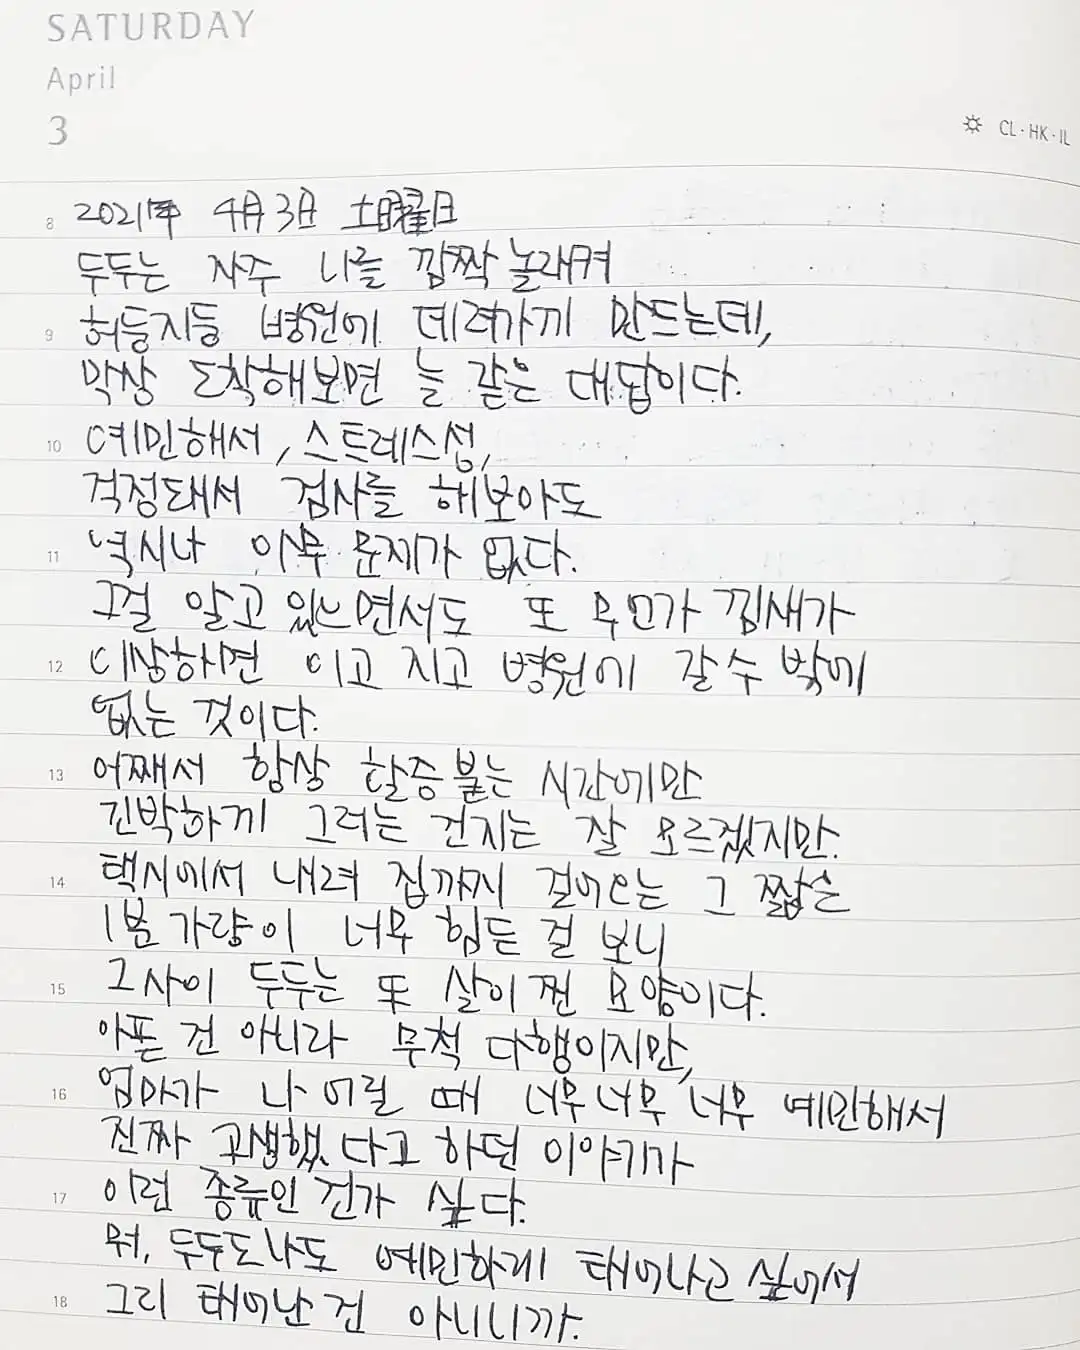 SATURDAY
April
3
CL·HK·IL
8 2021年 4月 3日 土曜日
두두는 자주 나를 깜짝 놀래켜
9 허둥지둥 병원에 데려가게 만드는데,
막상 도착해보면 늘 같은 대답이다.
10 예민해서, 스트레스성,
걱정돼서 검사를 해보아도
11 역시나 아무 문제가 없다.
그걸 알고 있으면서도 또 무언가 낌새가
12 이상하면 이고 지고 병원에 갈 수 밖에
없는 것이다.
13 어째서 항상 할증 붙는 시간에만
긴박하게 그러는 건지는 잘 모르겠지만.
14 택시에서 내려 집까지 걸어오는 그 짧은
1분 가량이 너무 힘든 걸 보니
15 그 사이 두두는 또 살이 찐 모양이다.
아픈 건 아니라 무척 다행이지만,
16 엄마가 나 어릴 때 너무너무 너무 예민해서
진짜 고생했다고 하던 이야기가
17 이런 종류인 건가 싶다.
뭐, 두두도 나도 예민하게 태어나고 싶어서
18 그리 태어난 건 아니니까.